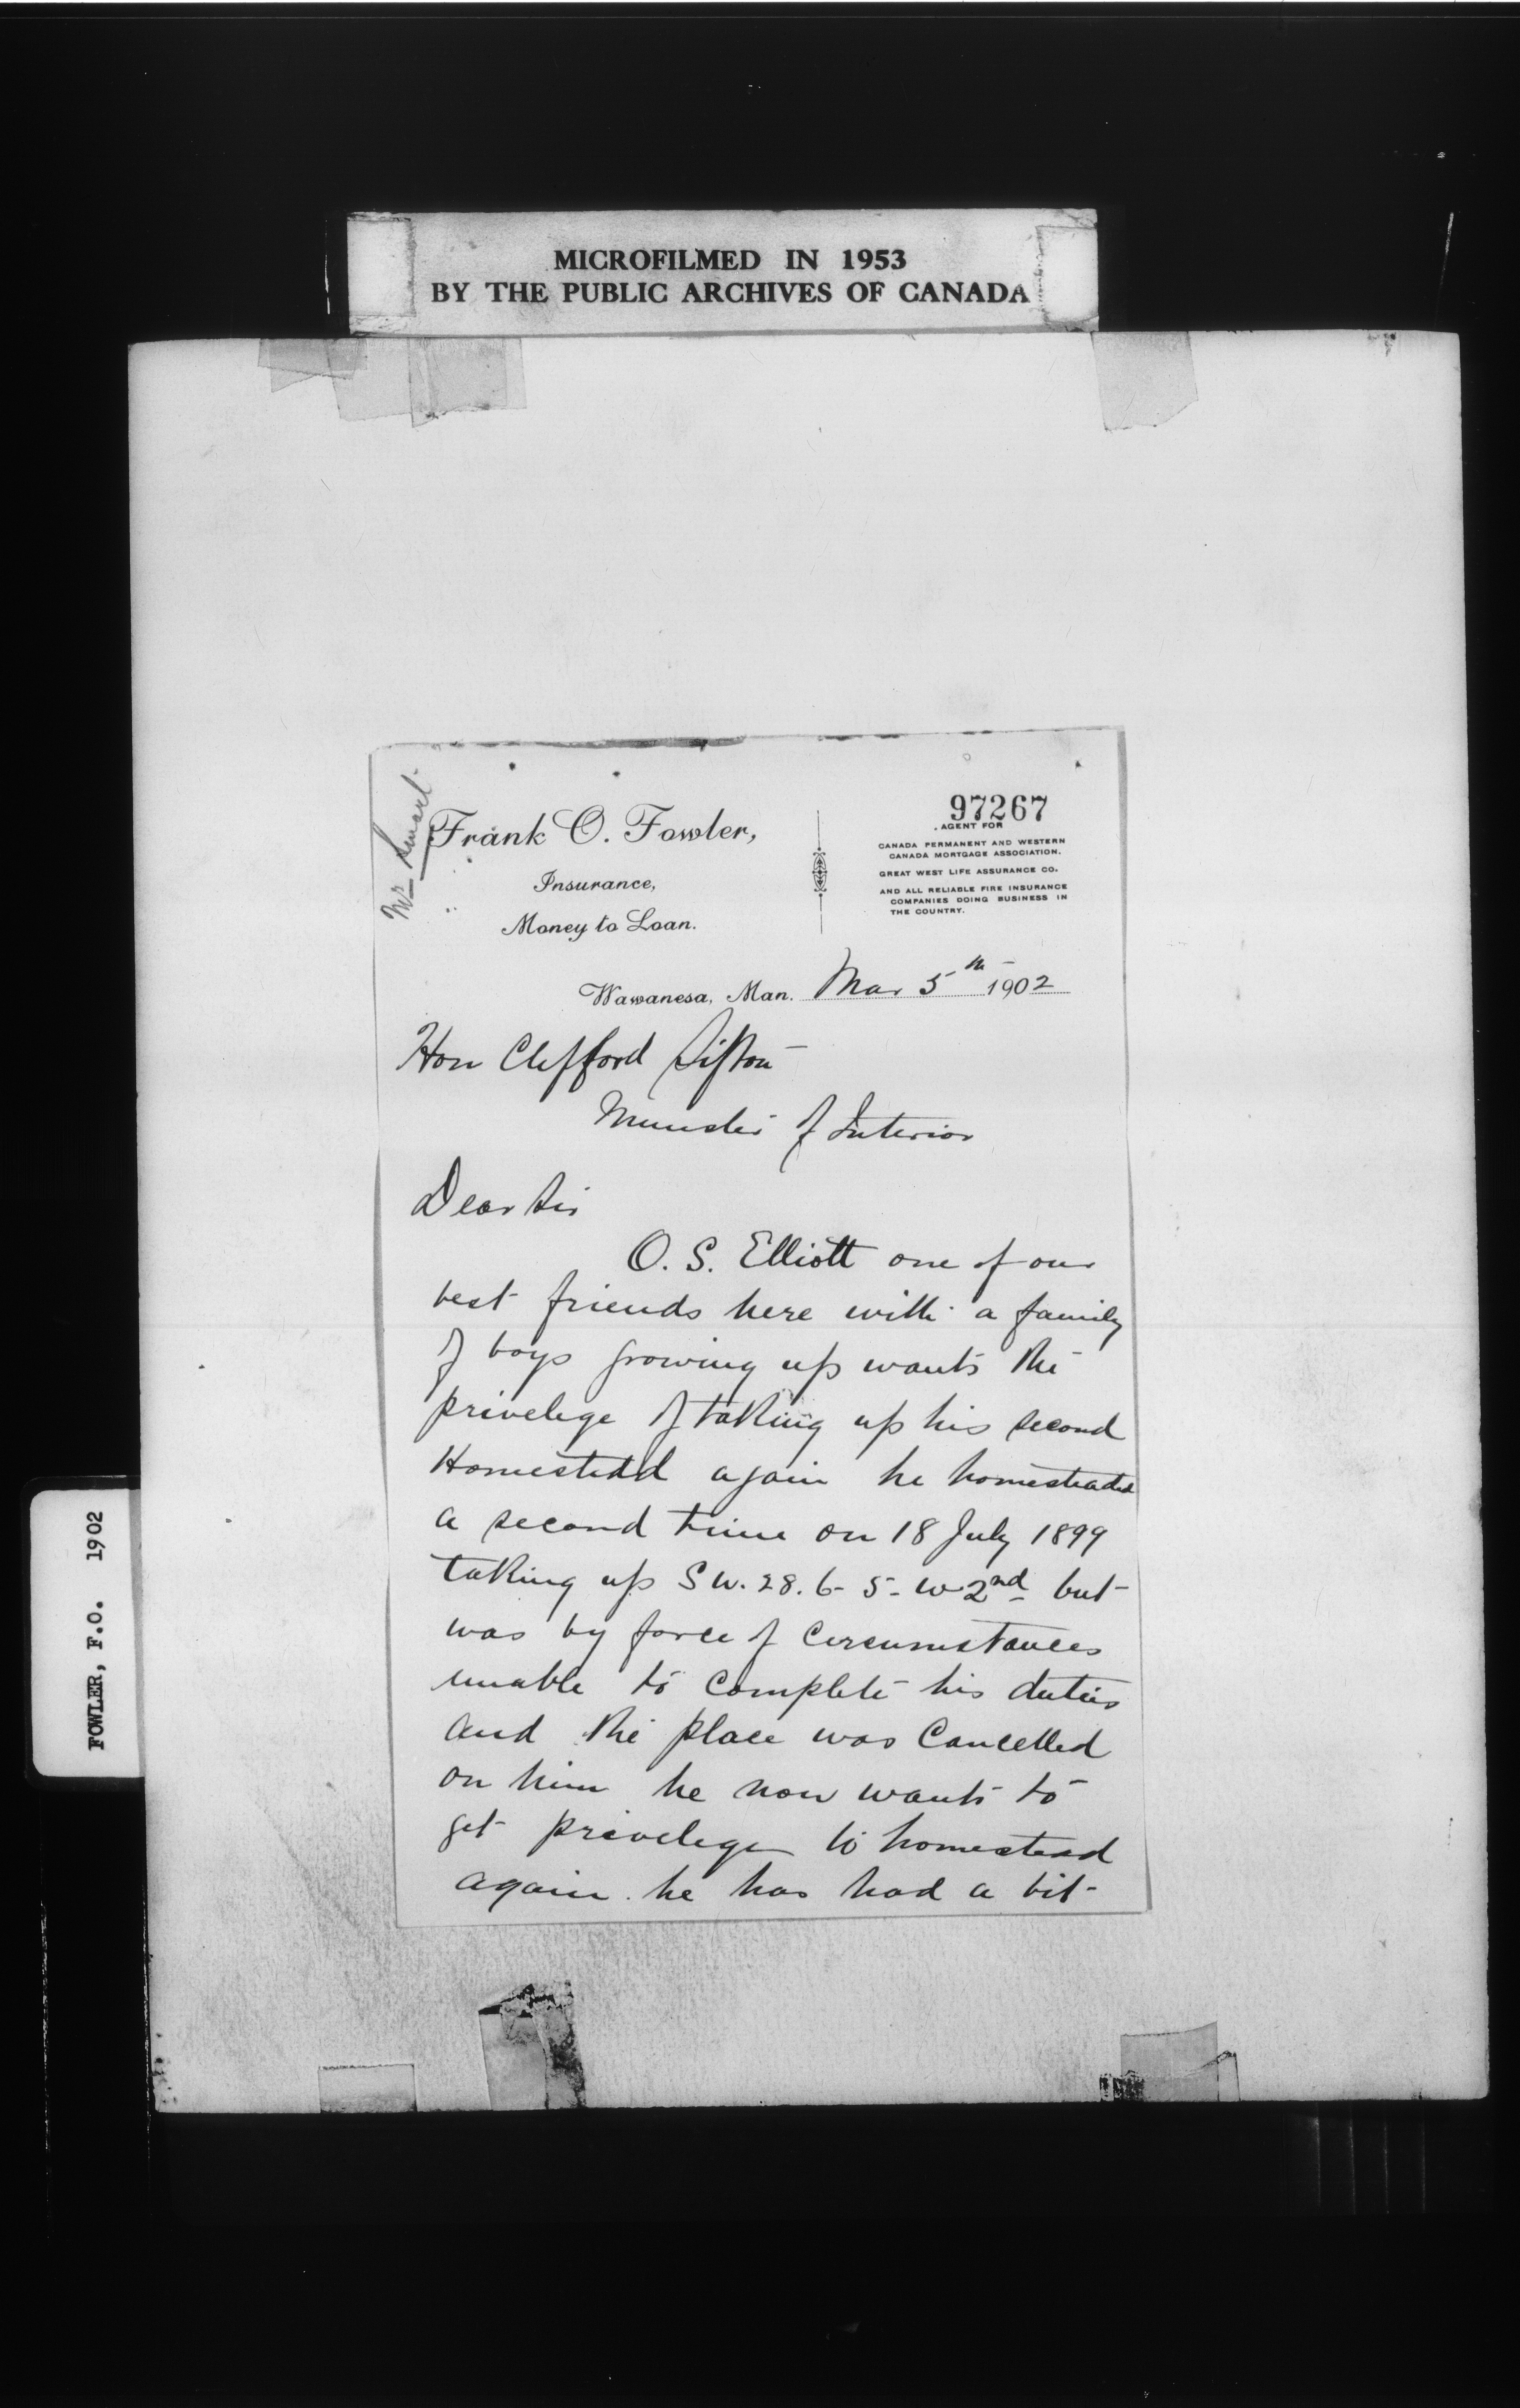 MICROFILMED IN 1953
BY THE PUBLIC ARCHIVES OF CANADA
FOWLER, F.O. 1902
Mr Smart
97267
Frank O. Fowler,
Insurance,
Money to Loan.
AGENT FOR
CANADA PERMANENT AND WESTERN
CANADA MORTGAGE ASSOCIATION.
GREAT WEST LIFE ASSURANCE CO.
AND ALL RELIABLE FIRE INSURANCE
COMPANIES DOING BUSINESS IN
THE COUNTRY.
Wawanesa, Man. Mar 5th 1902
Hon Clifford Sifton
Minister of Interior
Dear Sir
O. S. Elliott one of our
best friends here with a family
of boys growing up wants the
privelege of taking up his second
Homestead again he homesteaded
a second time on 18 July 1899
taking up S W. 28. 6 - 5 - W 2nd but
was by force of circumstances
unable to complete his duties
and the place was Cancelled
on him he now wants to
get privelege to homestead
again. he has had a bit